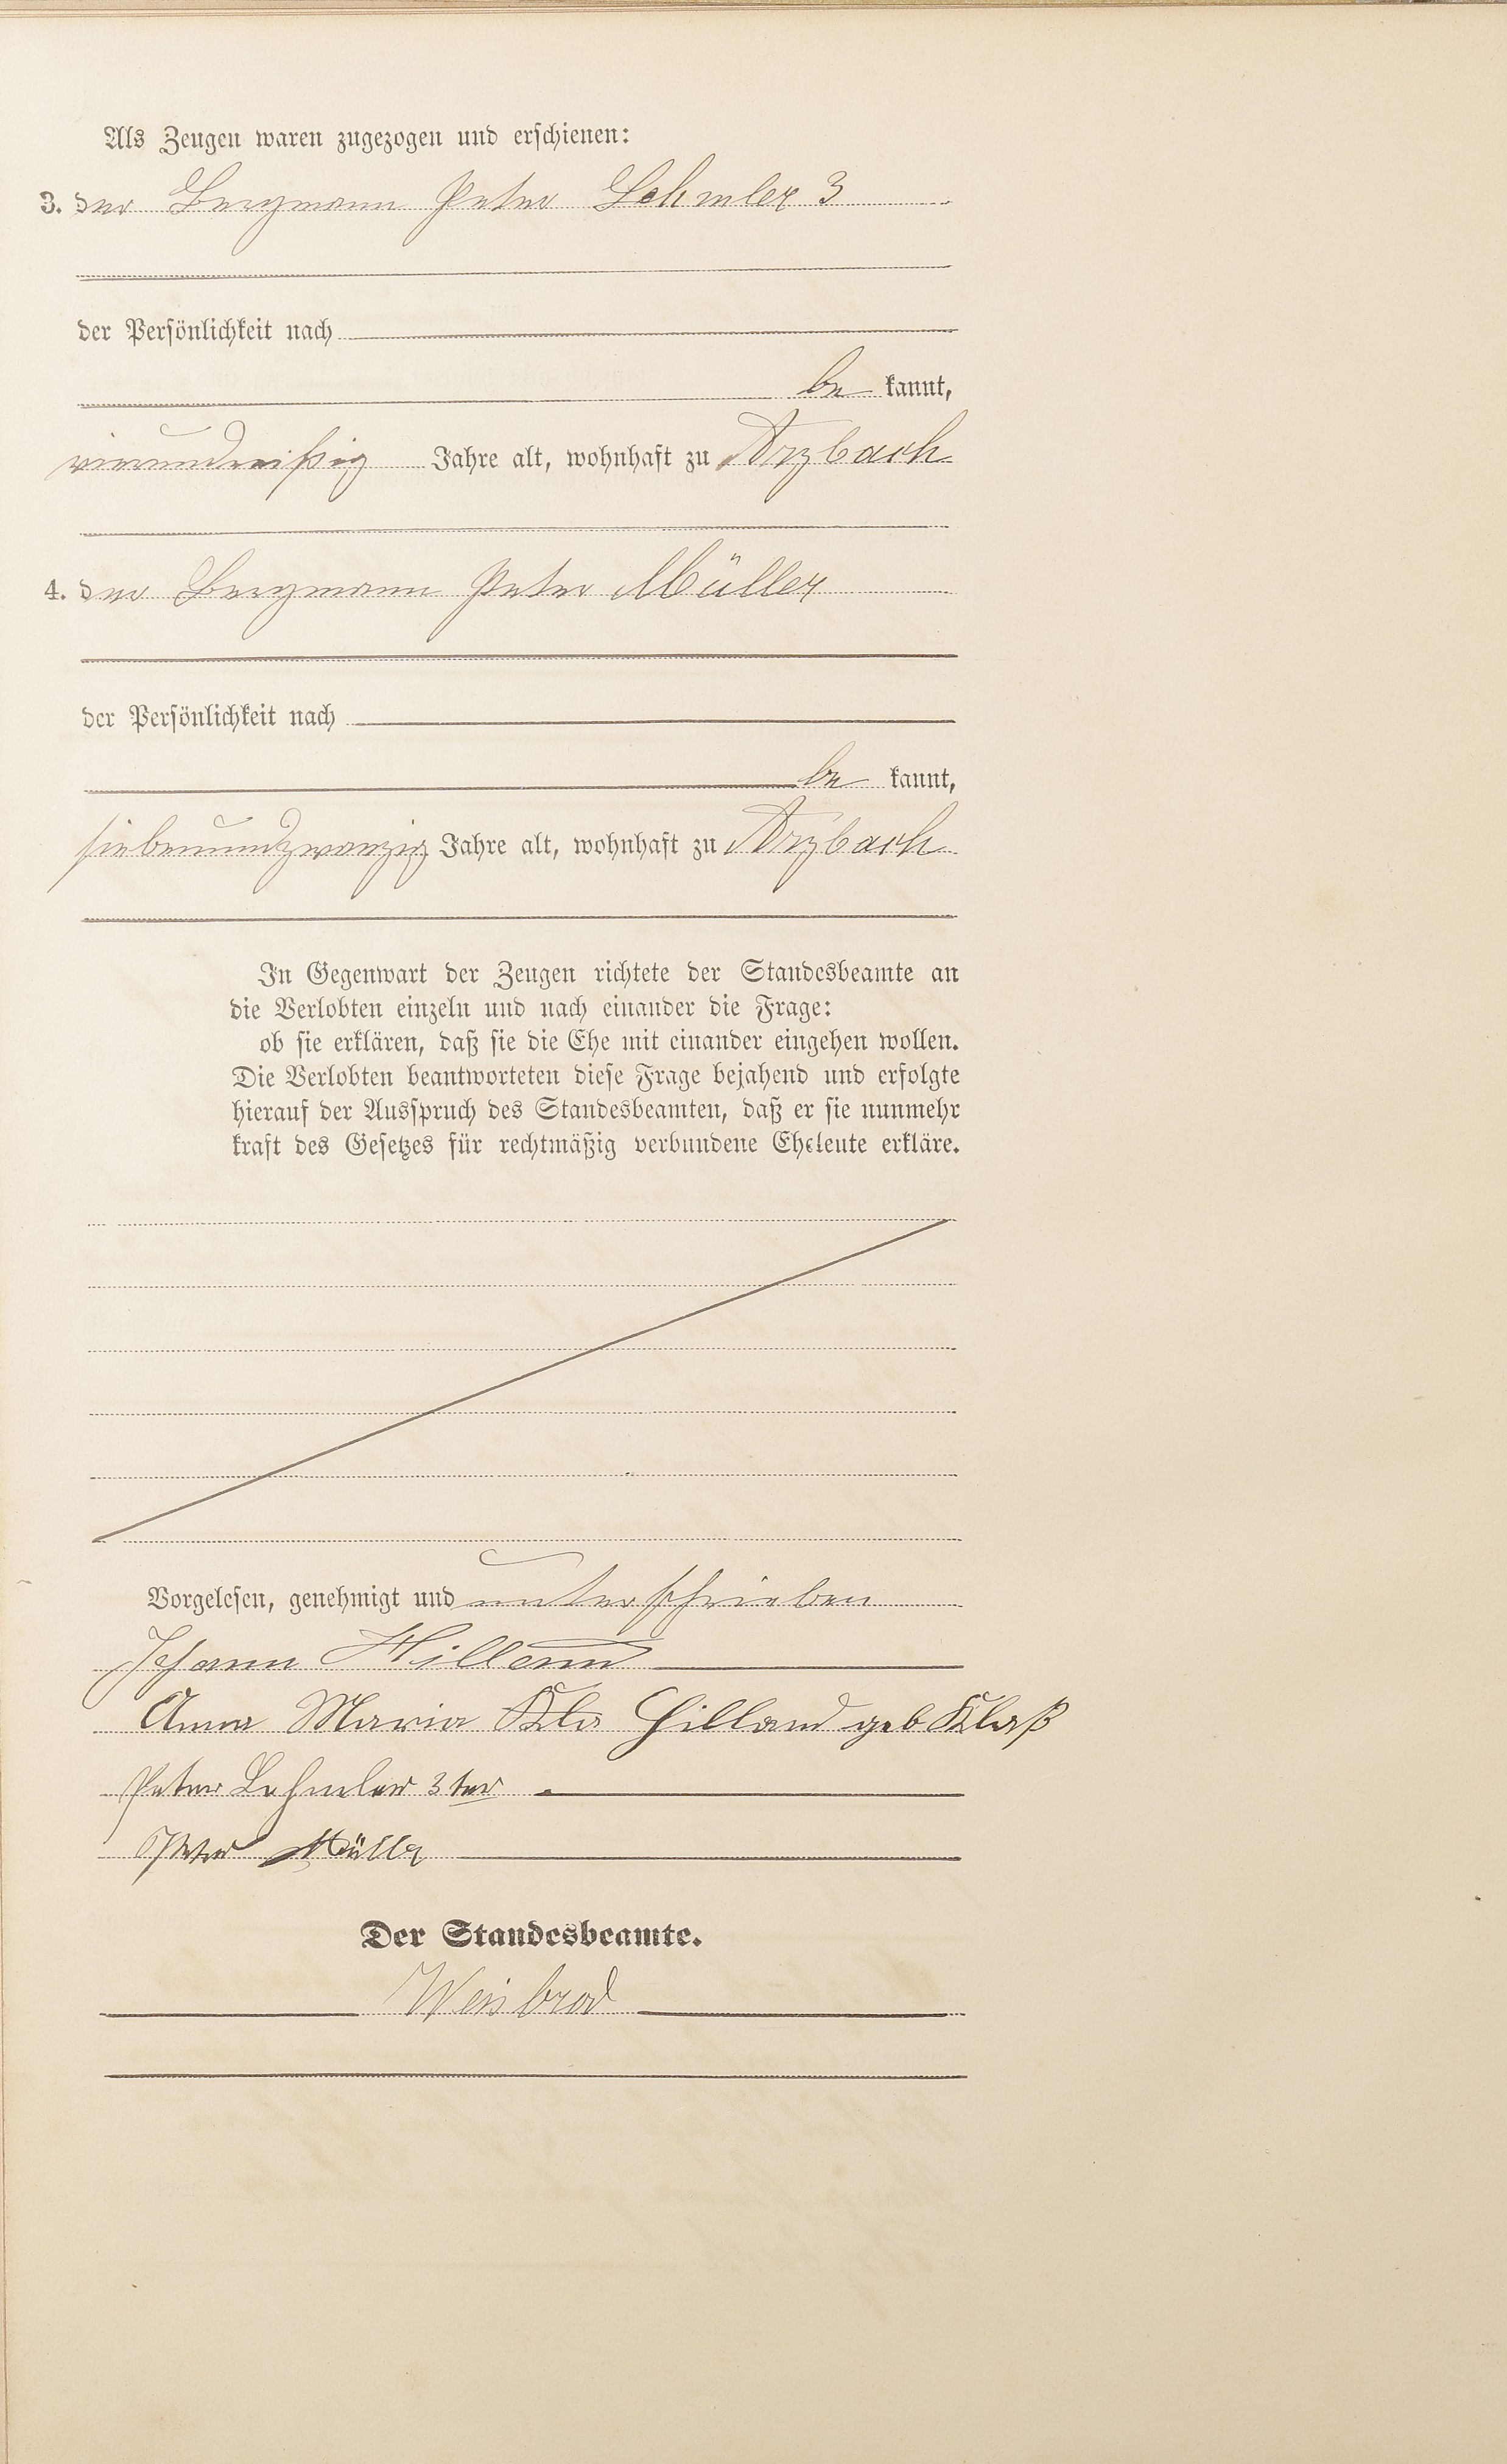 Als Zeugen waren zugezogen und erschienen:
3. der Bergmann Peter Lehmler 3
der Persönlichkeit nach
be kannt,
vierunddreißig Jahre alt, wohnhaft zu Arzbach
4. der Bergmann Peter Müller
der Persönlichkeit nach
be kannt,
siebenundzwanzig Jahre alt, wohnhaft zu Arzbach
In Gegenwart der Zeugen richtete der Standesbeamte an
die Verlobten einzeln und nach einander die Frage:
ob sie erklären, daß sie die Ehe mit einander eingehen wollen.
Die Verlobten beantworteten diese Frage bejahend und erfolgte
hierauf der Ausspruch des Standesbeamten, daß er sie nunmehr
kraft des Gesetzes für rechtmäßig verbundene Eheleute erkläre.
Vorgelesen, genehmigt und unterschrieben
Johann Hilland
Anna Maria Kla Hilland geb Klaß
Peter Lehmler 3ter
Peter Müller
Der Standesbeamte.
Weisbrod